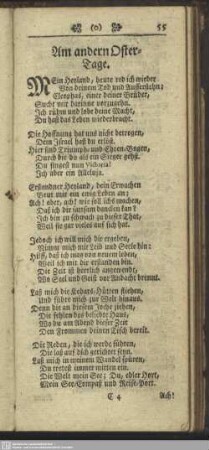 (o) 55
Am andern Oster-
Tage.
MEin Heyland, heute red ich wieder
Von deinem Tod und Aufferstehn;
Cleophas, einer deiner Brüder,
Sucht mir darinne vorzugehn.
Ich rühm und lobe deine Macht,
Du hast das Leben wiederbracht.
Die Hoffnung hat uns nicht betrogen,
Dein Israel hast du erlöst.
Hier sind Triumph- und Ehren-Bogen,
Durch die du als ein Sieger gehst.
Du singest nun Victoria!
Ich aber ein Alleluja.
Erstandner Heyland, dein Erwachen
Weckt mir ein ewig Leben an;
Ach! aber, ach! wie soll ichs machen,
Daß ich dir gnugsam dancken kan?
Ich bin zu schwach zu dieser That,
Weil sie gar vieles auf sich hat.
Jedoch ich will mich dir ergeben,
Nimm mich mit Leib und Seele hin;
Hilff, daß ich mag von neuem leben,
Weil ich mit dir erstanden bin.
Die Zeit ist herrlich angewendt,
Wo Saul und Geist vor Andacht brennt.
Laß mich die Kedars-Hütten fliehen,
Und führe mich zur Welt hinaus.
Denn die an diesem Joche ziehen,
Die fehlen das beliebte Haus,
Wo du am Abend dieser Zeit
Den Frommen deinen Tisch bereit.
Die Reden, die ich werde führen,
Die laß auf dich gerichtet seyn.
Laß mich in meinem Wandel spüren,
Du tretest immer mitten ein.
Die Welt mein See; Du, edler Hort,
Mein See-Compaß und Reise-Port.
C 4 Ach!